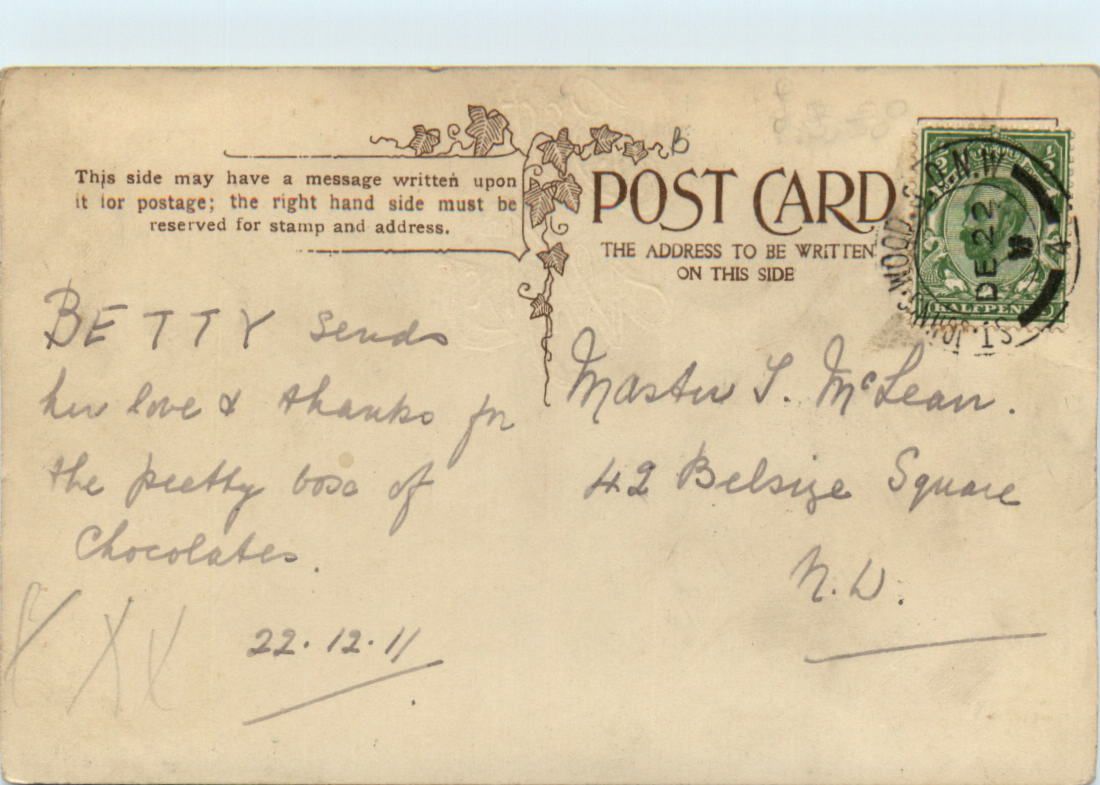 This side may have a message written upon
it for postage; the right hand side must be
reserved for stamp and address.
B
POST CARD
THE ADDRESS TO BE WRITTEN
ON THIS SIDE
ST. JOHN'S WOOD N.W
DE 22
11
HALFPENNY
BETTY sends
her love & thanks for
the pretty box of
Chocolates.
X X X
22.12.11
Master I. McLean.
42 Belsize Square
N.W.